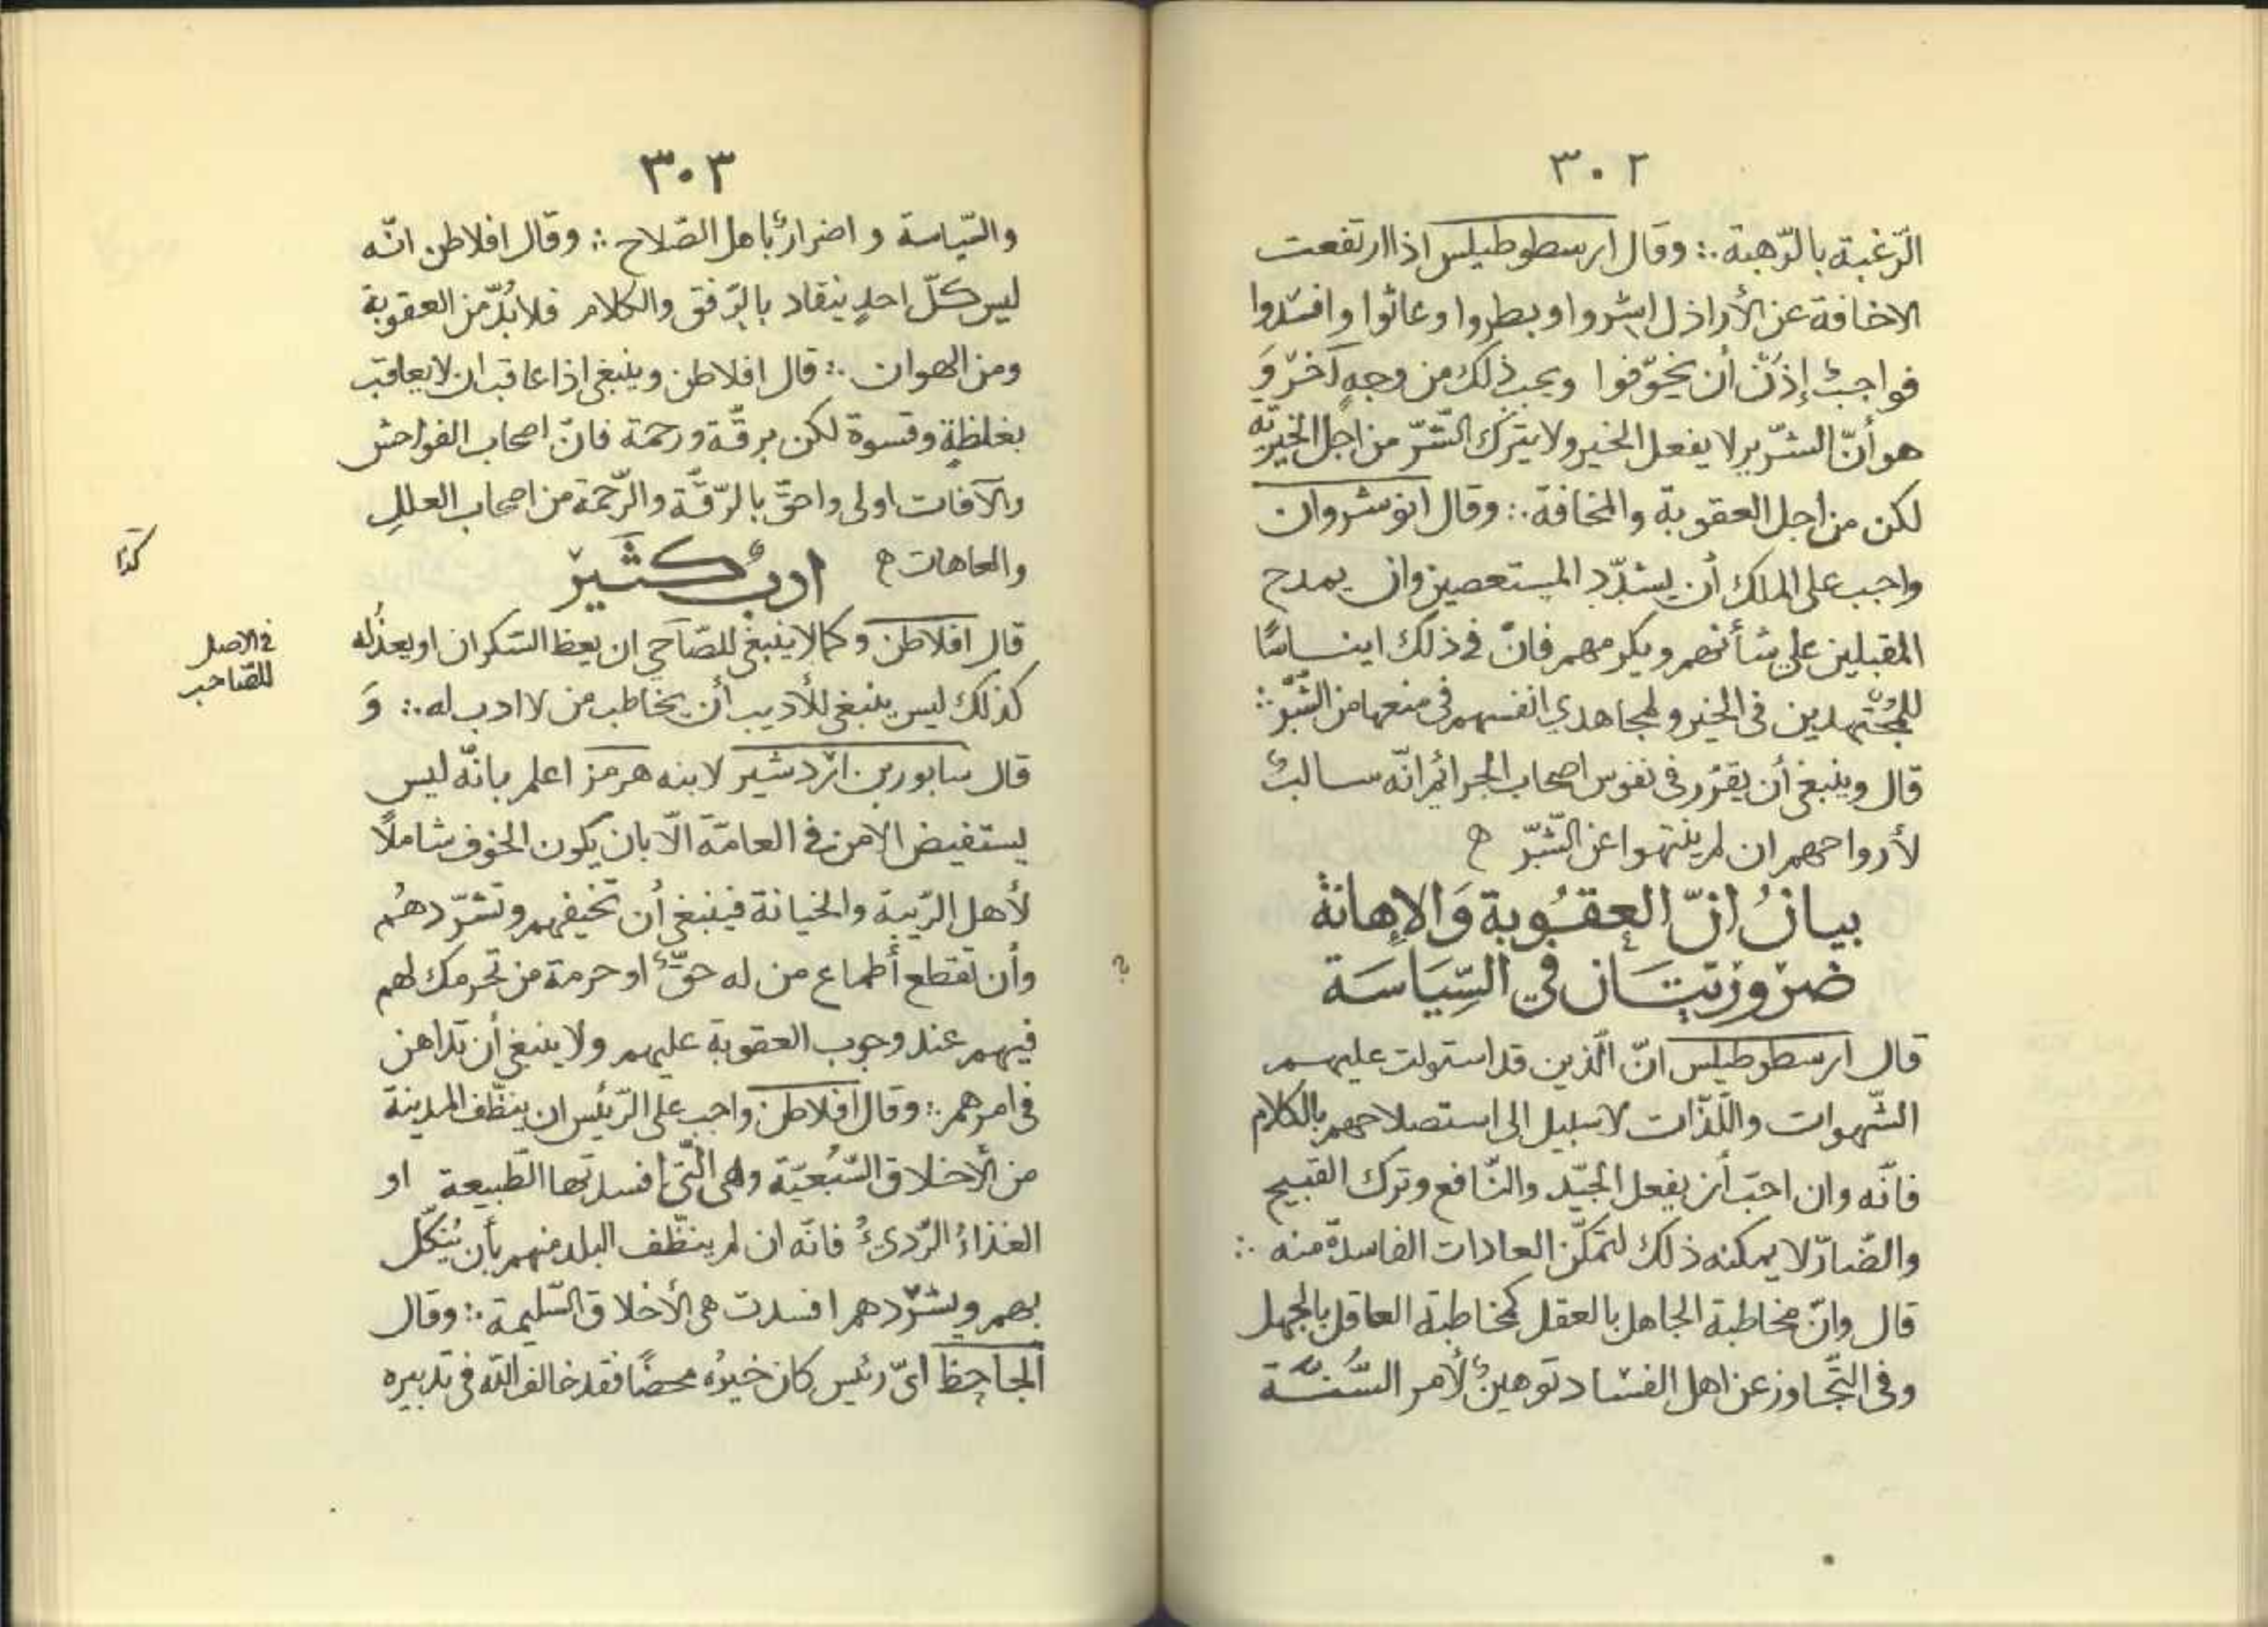 ٣٠٢
الرّغبة بالرّهبة ∴ وقال ارسطوطيلس اذا ارتفعت
الاخافة عن الأراذل اشروا وبطروا وعاثوا وافسدوا
فواجبٌ إذَنْ أن يخوّفوا ويجب ذلك من وجهٍ آخرَ وَ
هو أنّ الشرّير لا يفعل الخير ولا يترك الشّرّ من اجل الخيريّه
لكن من اجل العقوبة والمخافة ∴ وقال انوشروان
واجب على الملك أن يشدّد المستعصين وان يمدح
المقبلين على شأنهم ويكرمهم فانّ في ذلك ايناسًا
للمجُتهدين في الخير ولمجاهدي انفسهم في منعها من الشّرّ ∴
قال وينبغي أن يقرّر في نفوس اصحاب الجرائم انّه سالبٌ
لأرواحهم ان لم ينتهوا عن الشّرّ ه
بيانُ انّ العقُوبة وَالإهانة
ضروريّتَان في السِّيَاسَة
قال ارسطوطيلس انّ الّذين قد استولت عليهم
الشّهوات واللّذّات لا سبيل الى استصلاحهم بالكلام
فانّه وان احبّ أن يفعل الجيّد والنّافع وترك القبيح
والضّارّ لا يمكنه ذلك لتمكّن العادات الفاسدة منه ∴
قال وانّ مخاطبة الجاهل بالعقل كمخاطبة العاقل بالجهل
وفي التّجاوز عن اهل الفساد توهينٌ لأمر السُّنّة
٣٠٣
والسّياسة واضرارٌ باهل الصّلاح ∴ وقال افلاطن انّه
ليس كلّ احدٍ ينقاد بالرّفق والكلام فلا بُدّ من العقوبة
ومن الهوان ∴ قال افلاطن وينبغي اذا عاقب ان لا يعاقب
بغلظةٍ وقسوة لكن برقّة ورحمة فانّ اصحاب الفواحش
والآفات اولى واحقّ بالرّقّة والرّحمة من اصحاب العللِ
والعاهات ه ادبٌ كثير
كذا
قال افلاطن وكما لا ينبغي للصّاحي ان يعظ السّكران او يعذُله
في الاصل
للصّاحب
كذلك ليس ينبغي للأديب أن يخاطب من لا ادب له ∴ وَ
قال سابور بن ازدشير لابنه هرمز اعلم بانّه ليس
يستفيض الامن في العامّة الّا بان يكون الخوف شاملًا
لأهل الرّيبة والخيانة فينبغي أن تخيفهم وتشرّدهُم
وأن تقتطع أطماع من له حقٌّ او حرمة من تحرمك لهم
؟
فيهم عند وجوب العقوبة عليهم ولا ينبغي أن تداهن
في امرهم ∴ وقال افلاطن واجب على الرّئيس ان ينظّف المدينة
من الأخلاق السّبُعيّة وهي الّتي افسدتها الطّبيعة او
الغذاءُ الرّديءُ فانّه ان لم ينظّف البلد منهم بأن يُنكّل
بهم ويشرّدهم افسدت هي الأخلاق السّليمة ∴ وقال
الجاحظ ايّ رئيس كان خيرُه محضًا فقد خالف اللّه في تدبيره